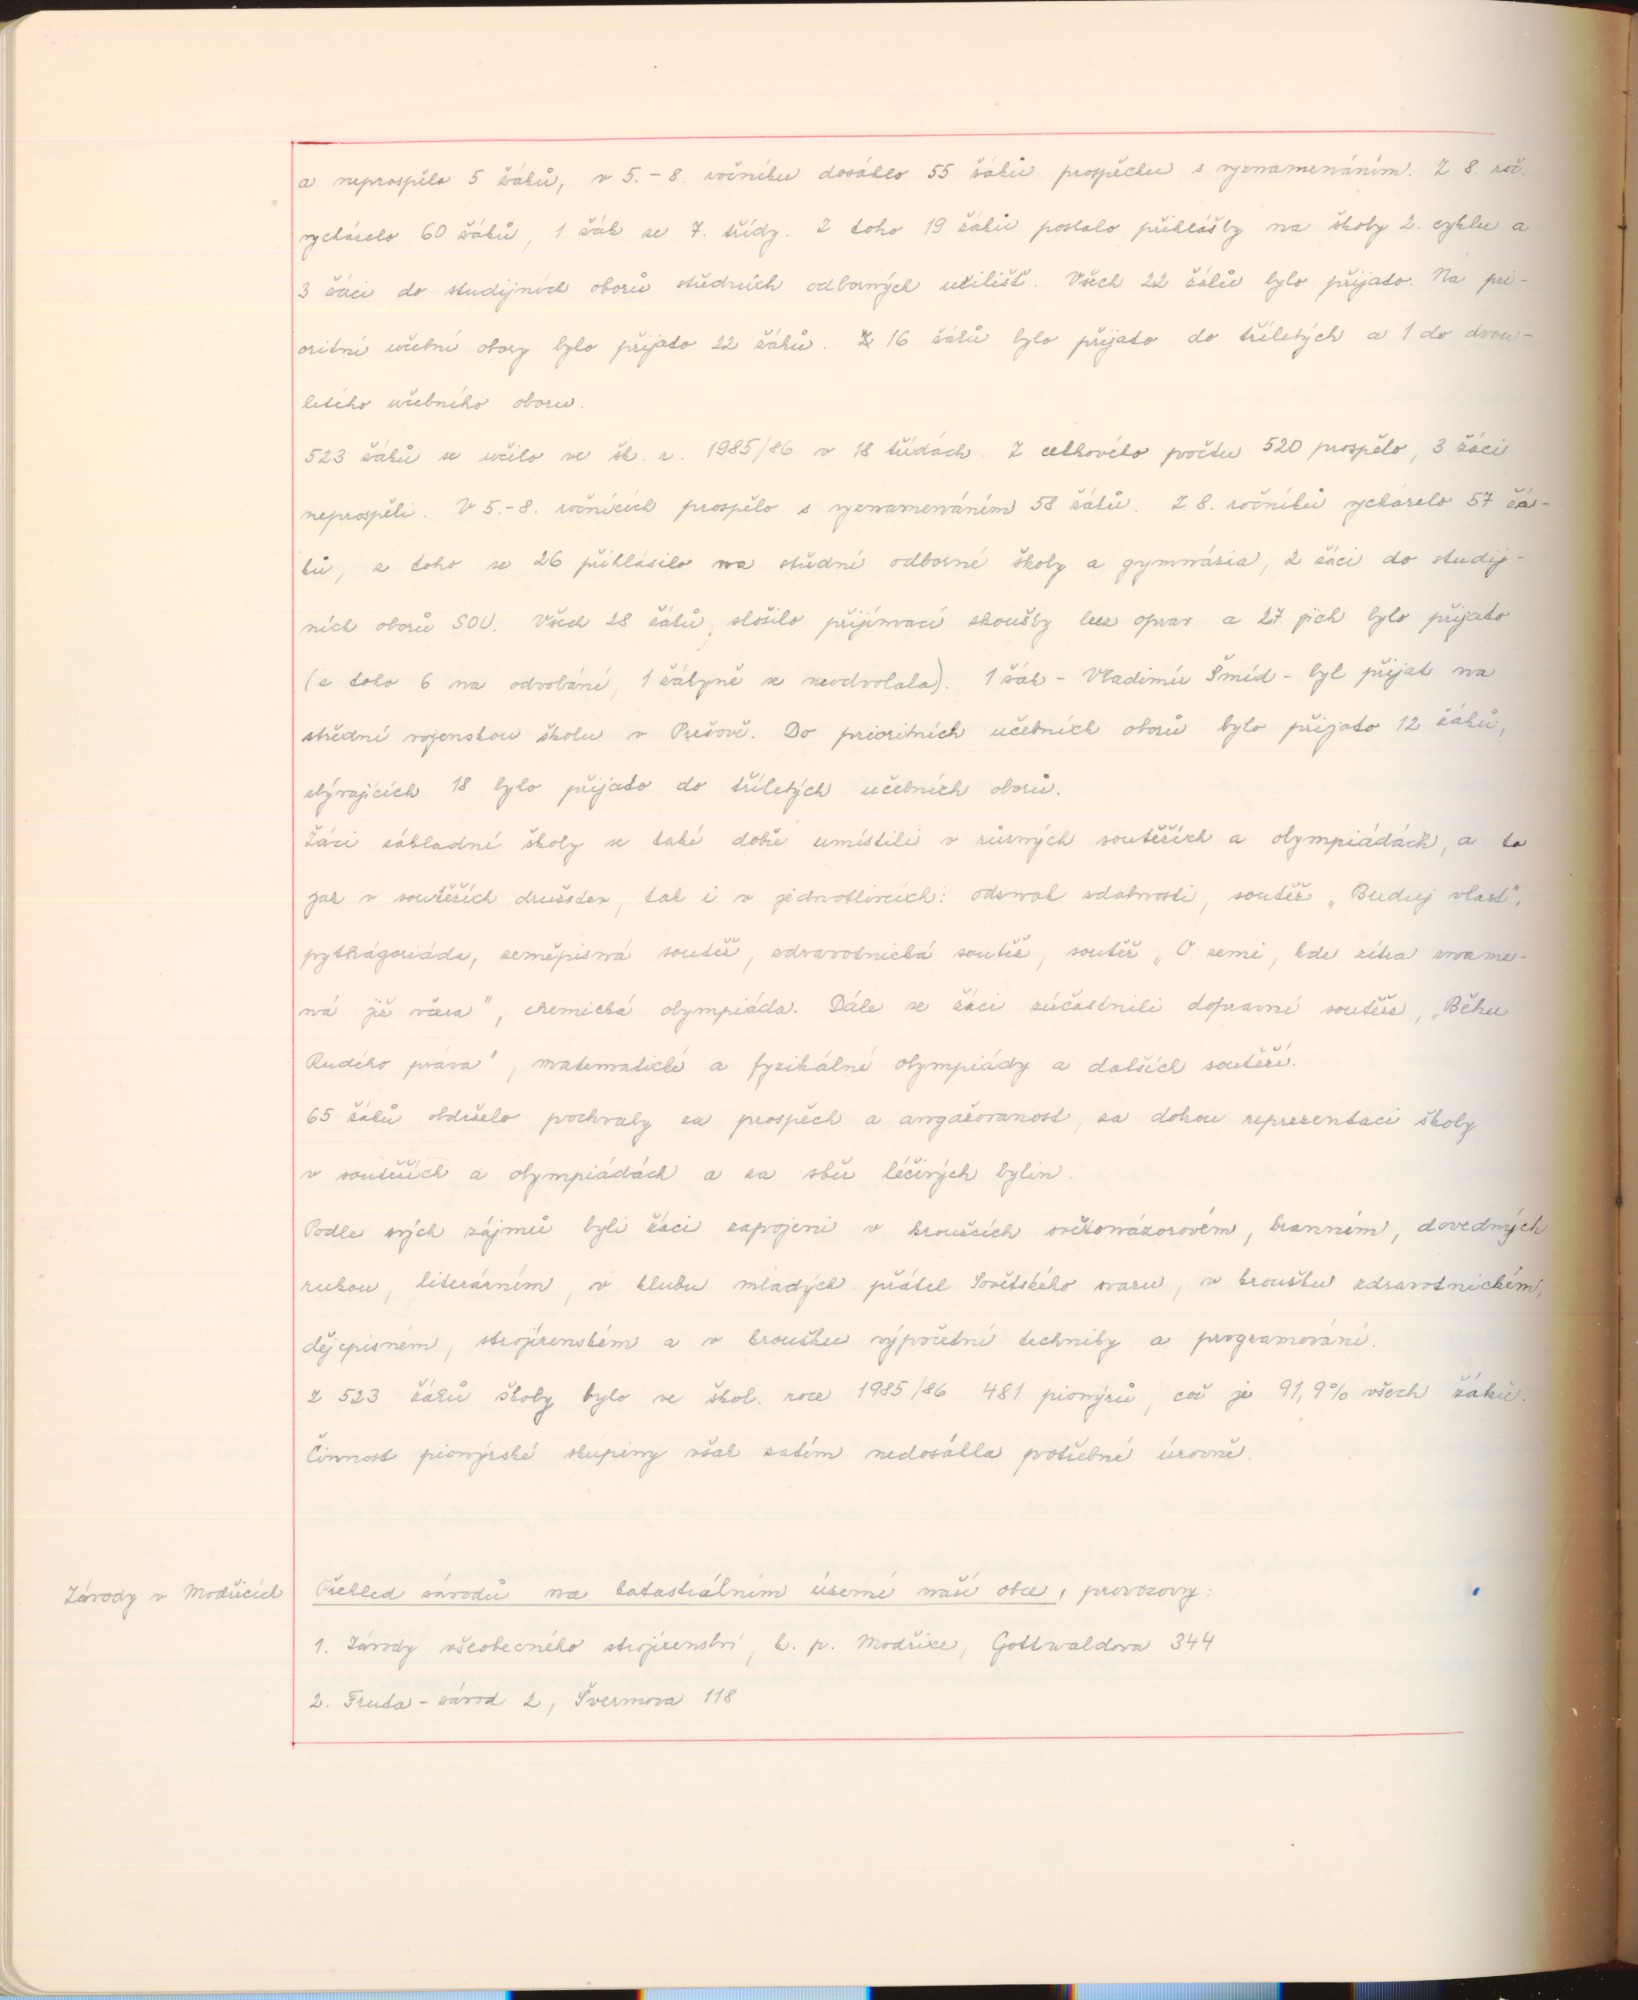 a neprospělo 5 žáků, v 5.-8. ročníku dosáhlo 55 žáků prospěchu s vyznamenáním. Z 8. roč.
vycházelo 60 žáků, 1 žák ze 7. třídy. Z toho 19 žáků poslalo přihlášky na školy 2. cyklu a
3 žáci do studijních oborů středních odborných učilišť. Všech 22 žáků bylo přijato. Na pri-
oritní učební obory bylo přijato 22 žáků. Z 16 žáků bylo přijato do tříletých a 1 do dvou-
letého učebního oboru.
523 žáků se učilo ve šk. r. 1985/86 v 18 třídách. Z celkového počtu 520 prospělo, 3 žáci
neprospěli. V 5.-8. ročnících prospělo s vyznamenáním 58 žáků. Z 8. ročníků vycházelo 57 žá-
ků, z toho se 26 přihlásilo na střední odborné školy a gymnásia, 2 žáci do studij-
ních oborů SOU. Všech 28 žáků, složilo přijímací zkoušky bez oprav a 27 jich bylo přijato
(z toho 6 na odvolání, 1 žákyně se neodvolala). 1 žák - Vladimír Šmíd - byl přijat na
střední vojenskou školu v Prešově. Do prioritních učebních oborů bylo přijato 12 žáků,
zbývajících 18 bylo přijato do tříletých učebních oborů.
Žáci základní školy se také dobře umístili v různých soutěžích a olympiádách, a to
jak v soutěžích družstev, tak i v jednotlivcích: odznak zdatnosti, soutěž „Buduj vlast",
pythágoriáda, zeměpisná soutěž, zdravotnická soutěž, soutěž „O zemi, kde zítra zname-
ná již včera", chemická olympiáda. Dále se žáci zúčastnili dopravní soutěže, „Běhu
Rudého práva", matematické a fyzikální olympiády a dalších soutěží.
65 žáků obdrželo pochvaly za prospěch a angažovanost, za dobrou reprezentaci školy
v soutěžích a olympiádách a za sběr léčivých bylin.
Podle svých zájmů byli žáci zapojeni v kroužcích světonázorovém, branném, dovedných
rukou, literárním, v klubu mladých přátel Sovětského svazu, v kroužku zdravotnickém,
dějepisném, strojírenském a v kroužku výpočetní techniky a programování.
Z 523 žáků školy bylo ve škol. roce 1985/86 481 pionýrů, což je 91,9% všech žáků.
Činnost pionýrské skupiny však zatím nedosáhla potřebné úrovně.
Závody v Modřicích
Přehled závodů na katastrálním území naší obce, provozovny:
1. Závody všeobecného strojírenství, k. p. Modřice, Gottwaldova 344
2. Fruta - závod 2, Švermova 118